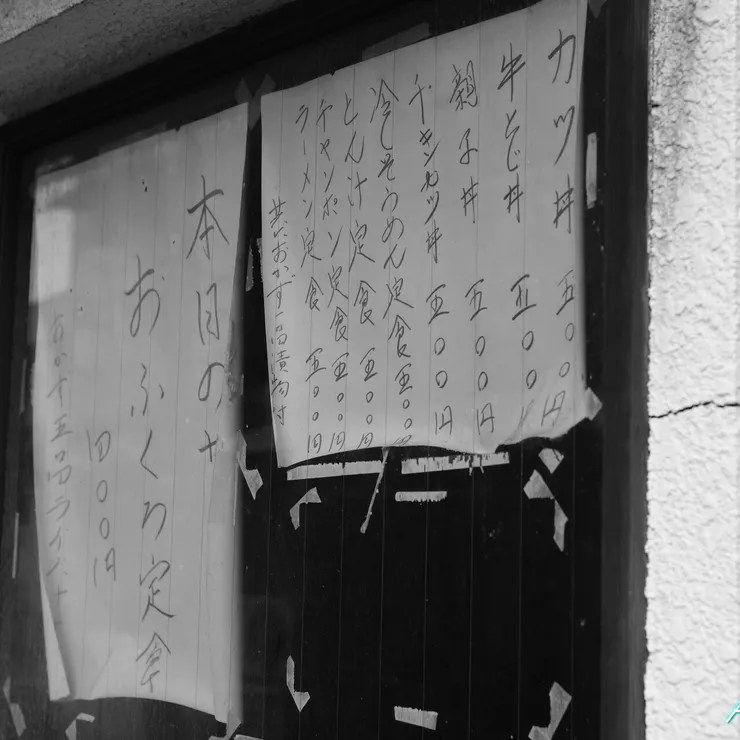 カツ丼 五〇〇円
牛とじ丼 五〇〇円
親子丼 五〇〇円
チキンカツ丼 五〇〇円
冷しそうめん定食 五〇〇円
とん汁定食 五〇〇円
チャンポン定食 五〇〇円
ラーメン定食 五〇〇円
共におかず一品漬物付
本日のサ
おふくろ定食
四〇〇円